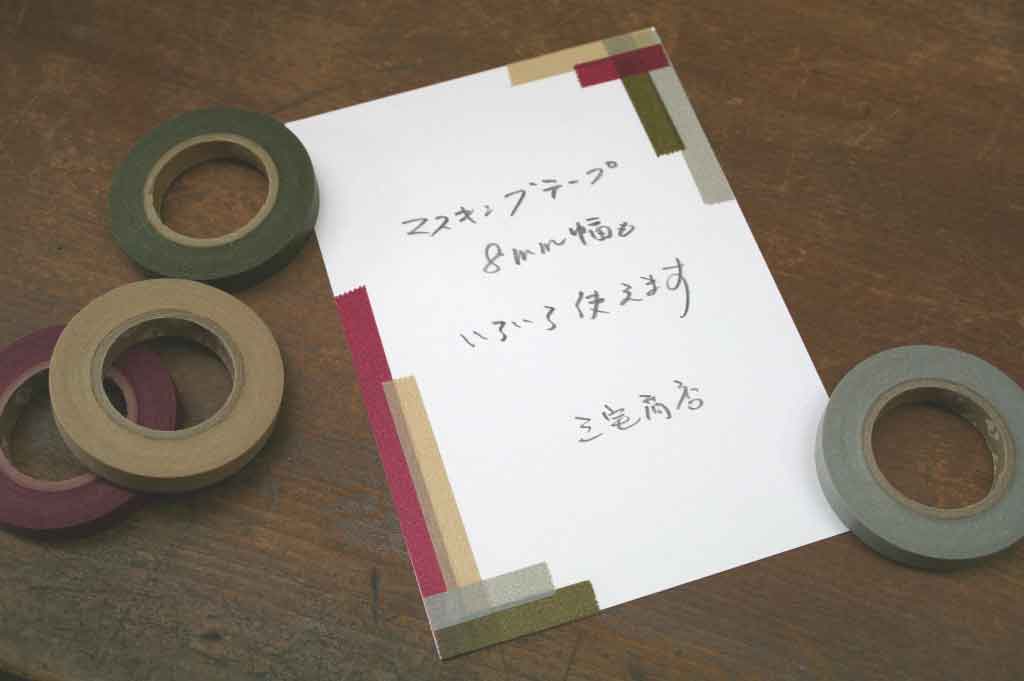 マスキングテープ
8mm幅も
いろいろ使えます
三宅商店